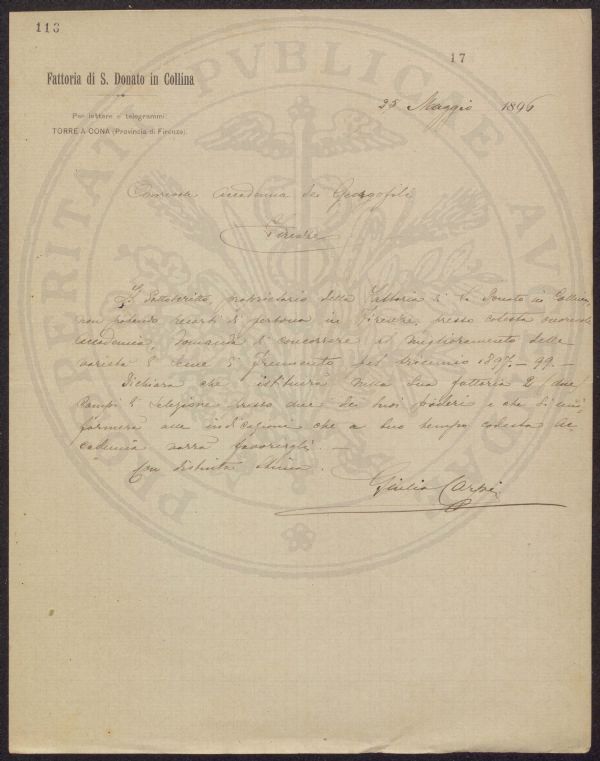 113
17
Fattoria di S. Donato in Collina
Per lettere e telegrammi
TORRE A CONA (Provincia di Firenze)
25 Maggio 1896
Onorevole Accademia dei Georgofili
Firenze
Il sottoscritto, proprietario della Fattoria di S. Donato in Collina,
non potendo recarsi di persona in Firenze, presso cotesta onorevole
Accademia, domanda di concorrere al miglioramento della
varietà di seme di Frumento pel triennio 1897-99. -
Dichiara che istituirà nella sua fattoria 2 (due)
Campi di selezione presso due dei suoi poderi e che si uni-
formerà alle indicazioni che a suo tempo codesta Ac-
cademia vorrà favorirgli. -
Con distinta stima.
Giulio
PERITATI PVBLICAE AV